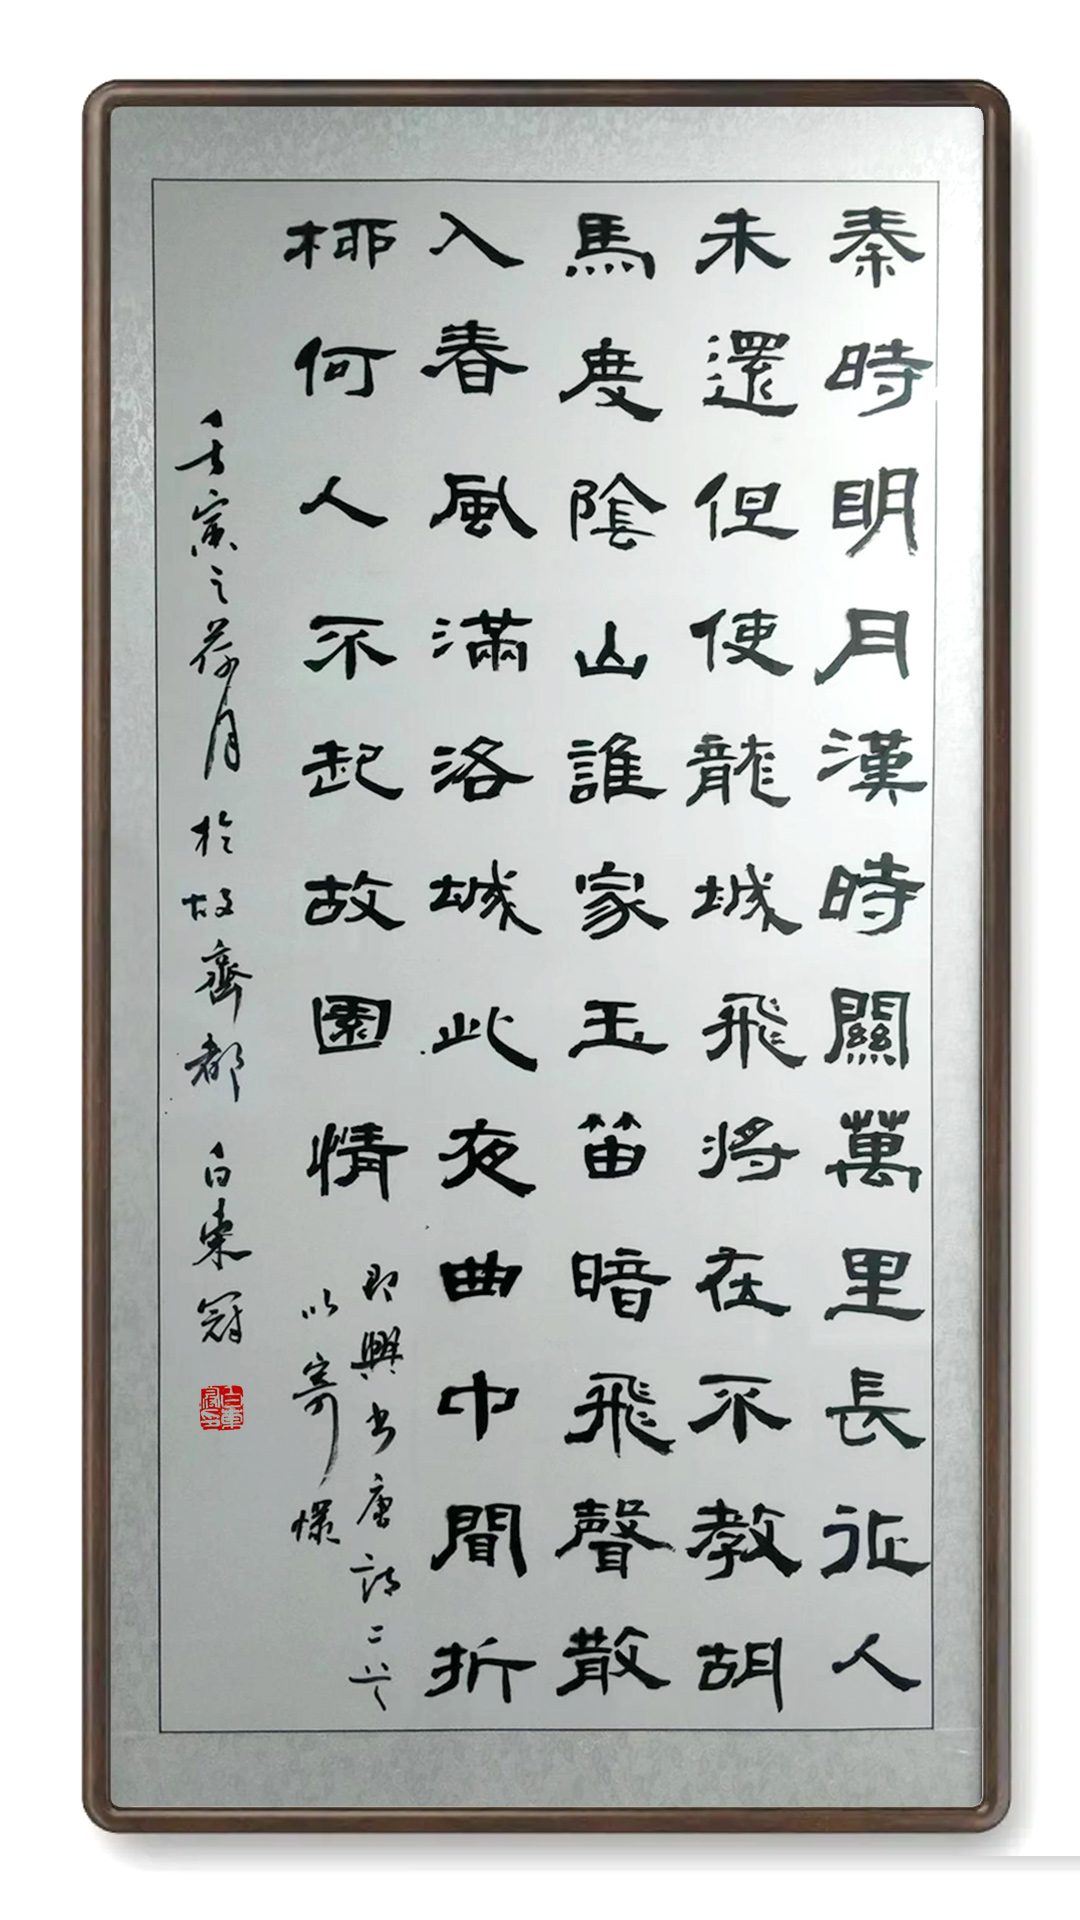 秦時明月漢時關萬里長征人
未還但使龍城飛將在不教胡
馬度陰山誰家玉笛暗飛聲散
入春風滿洛城此夜曲中間折
柳何人不起故園情
即興書唐詩二首
以寄懷
壬寅之荷月於故齊都 白東冠